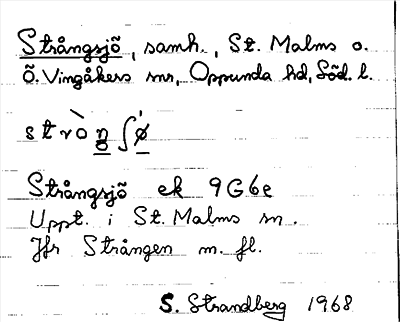 Strångsjö, samh., St. Malms o.
Ö. Vingåkers snr, Oppunda hd, Söd. l.
stròŋ̲ʃǿ̲
Strångsjö ek 9G6e
Uppt. i St. Malms sn.
Jfr Strången m. fl.
S. Strandberg 1968